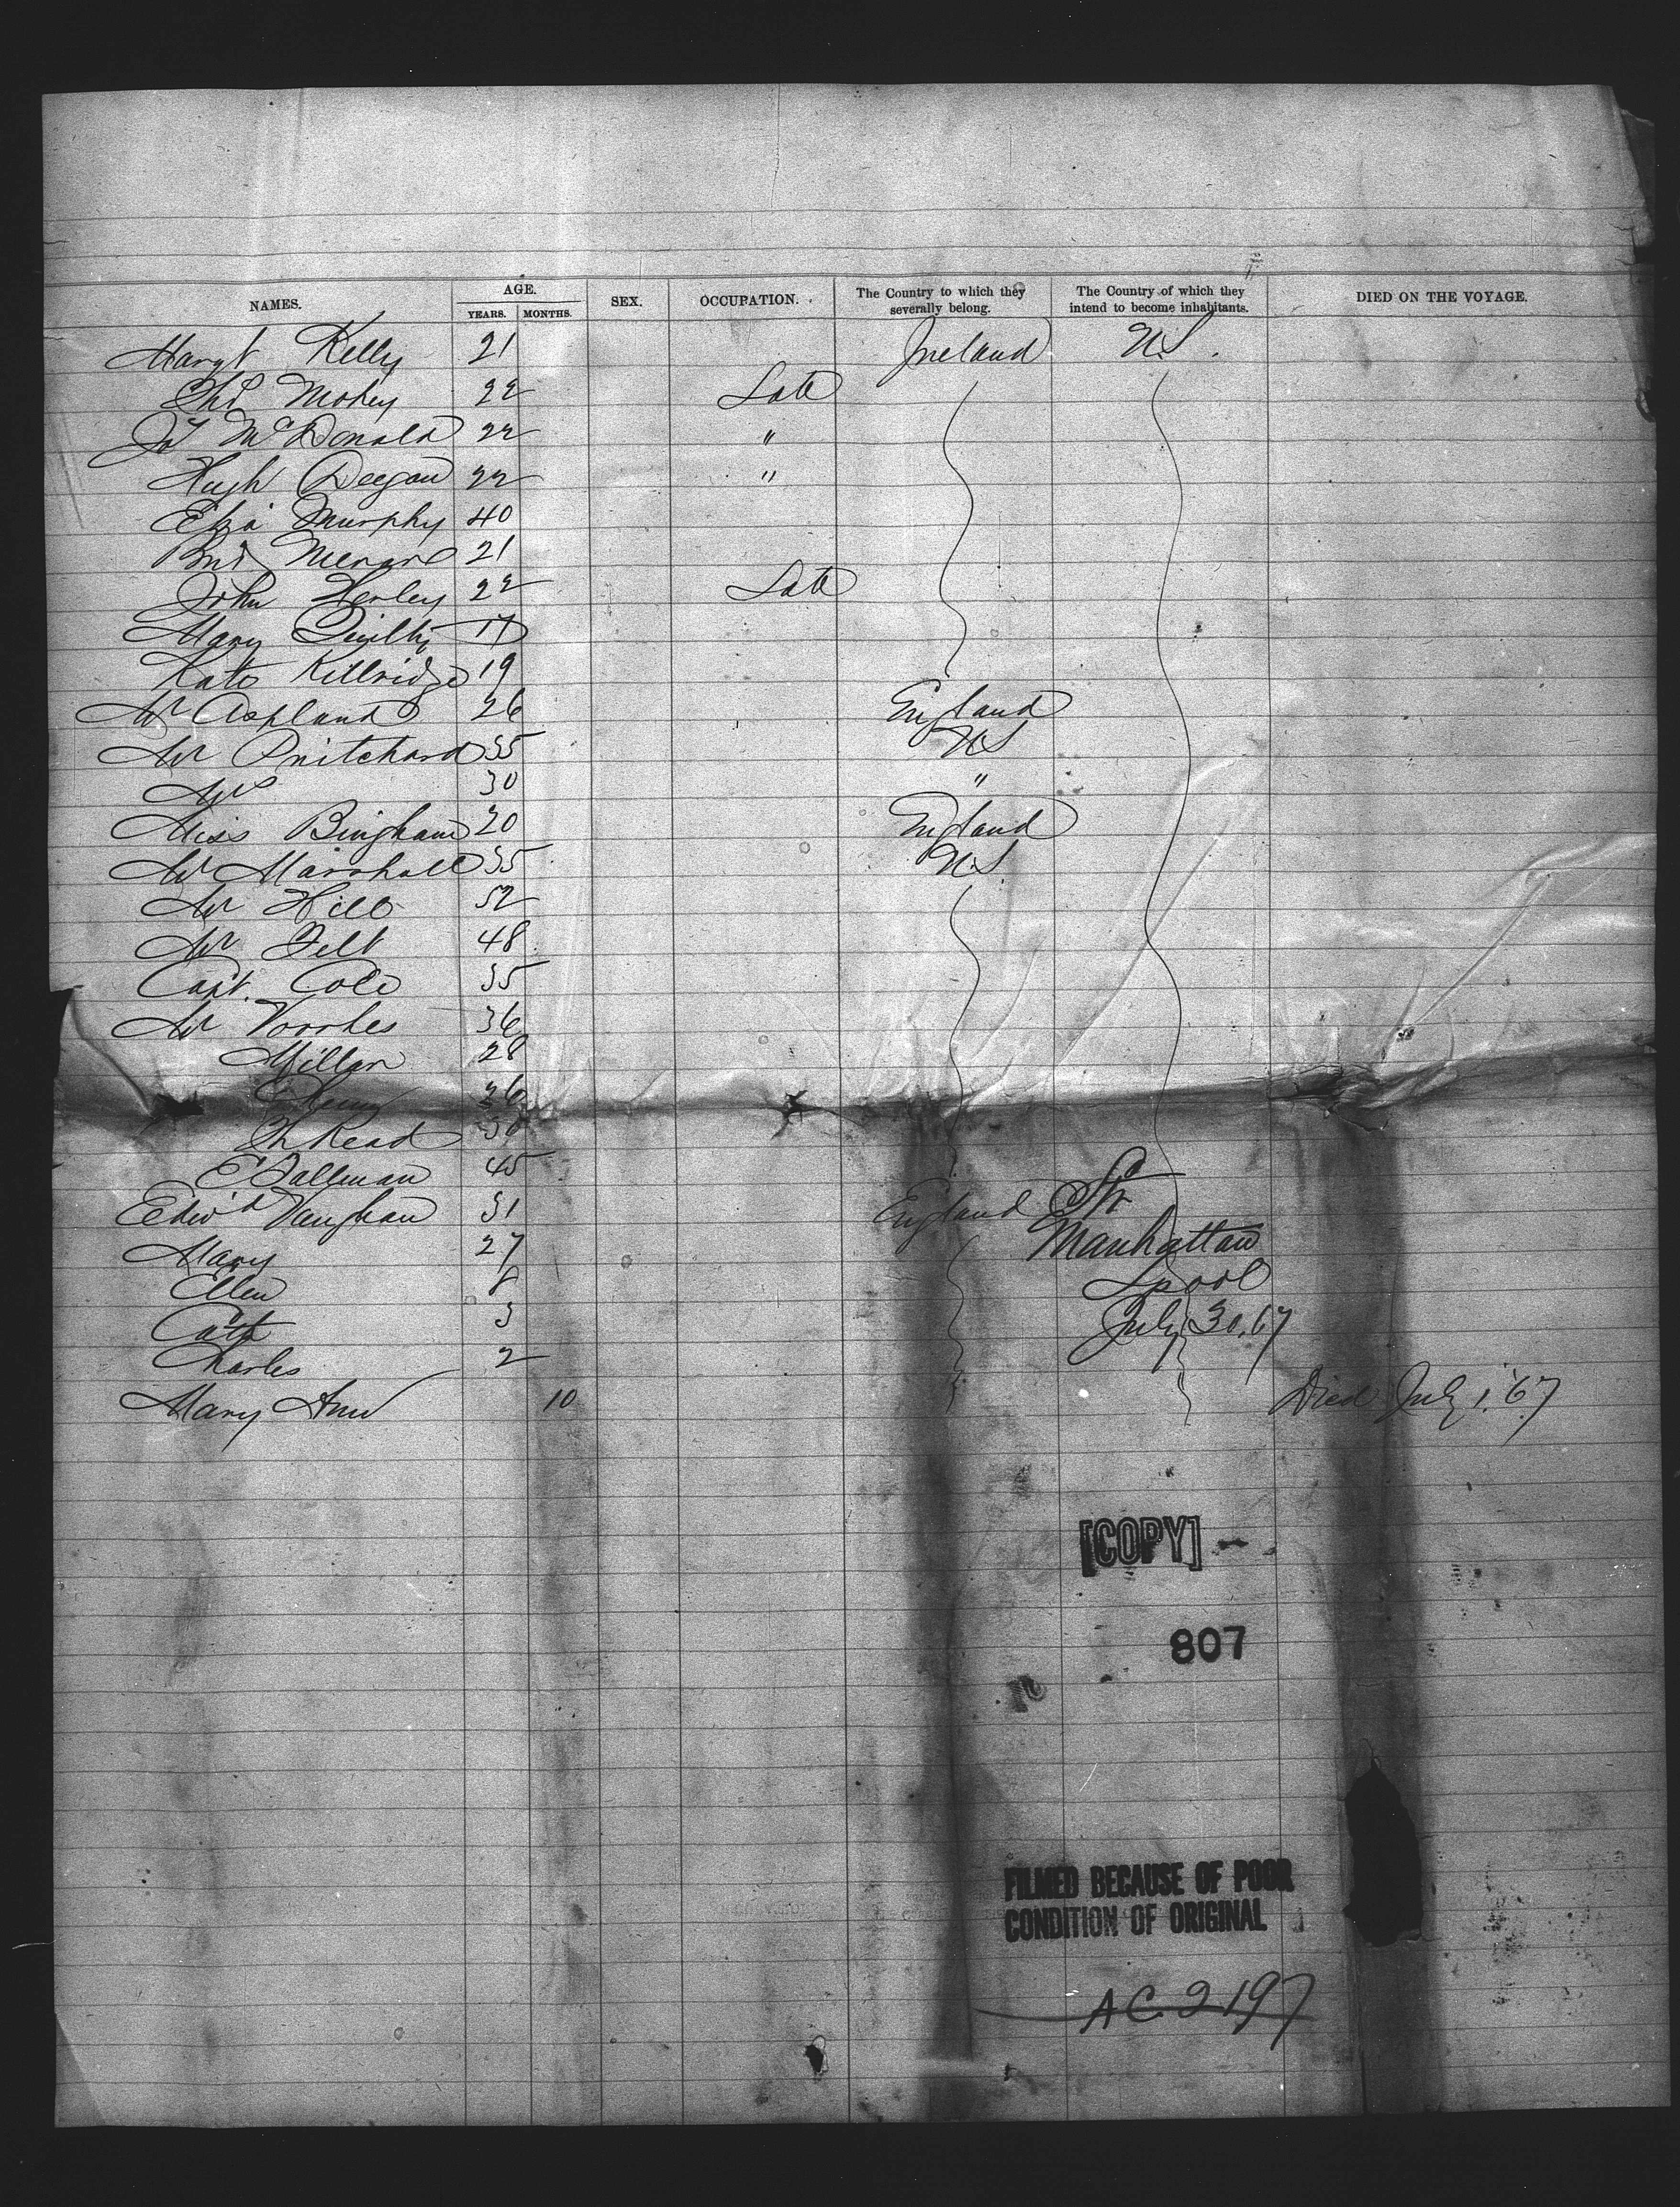 NAMES. AGE. YEARS. MONTHS. SEX. OCCUPATION. The Country to which they severally belong. The Country of which they intend to become inhabitants. DIED ON THE VOYAGE.
Margt Kelly 21 Ireland U.S.
Ths 22 Lab
McDonald 22 "
Hugh Deegan 22 "
Eliza Murphy 40
21
John Henley 22 Lab
Mary 17
Kate Killridge 19
Mr Aspland 26 England
Mr Pritchard 35 U.S
Mrs 30 "
Miss Bingham 20 England
Mr Marshall 35 U.S.
Mr Hill 52
Mr Felt 48
Capt. Cole 35
Mr Voorhes 36
Millar 28
26
Th Read 30
E Tallman 45
Edwd Vaughan 31 England Str
Mary 27 Manhattan
Ellen 8 Lpool
Cath 3 July 30, 67
Charles 2
Mary Ann 10 Died July 1, 67
[COPY]
807
FILMED BECAUSE OF POOR
CONDITION OF ORIGINAL
A C. 2197